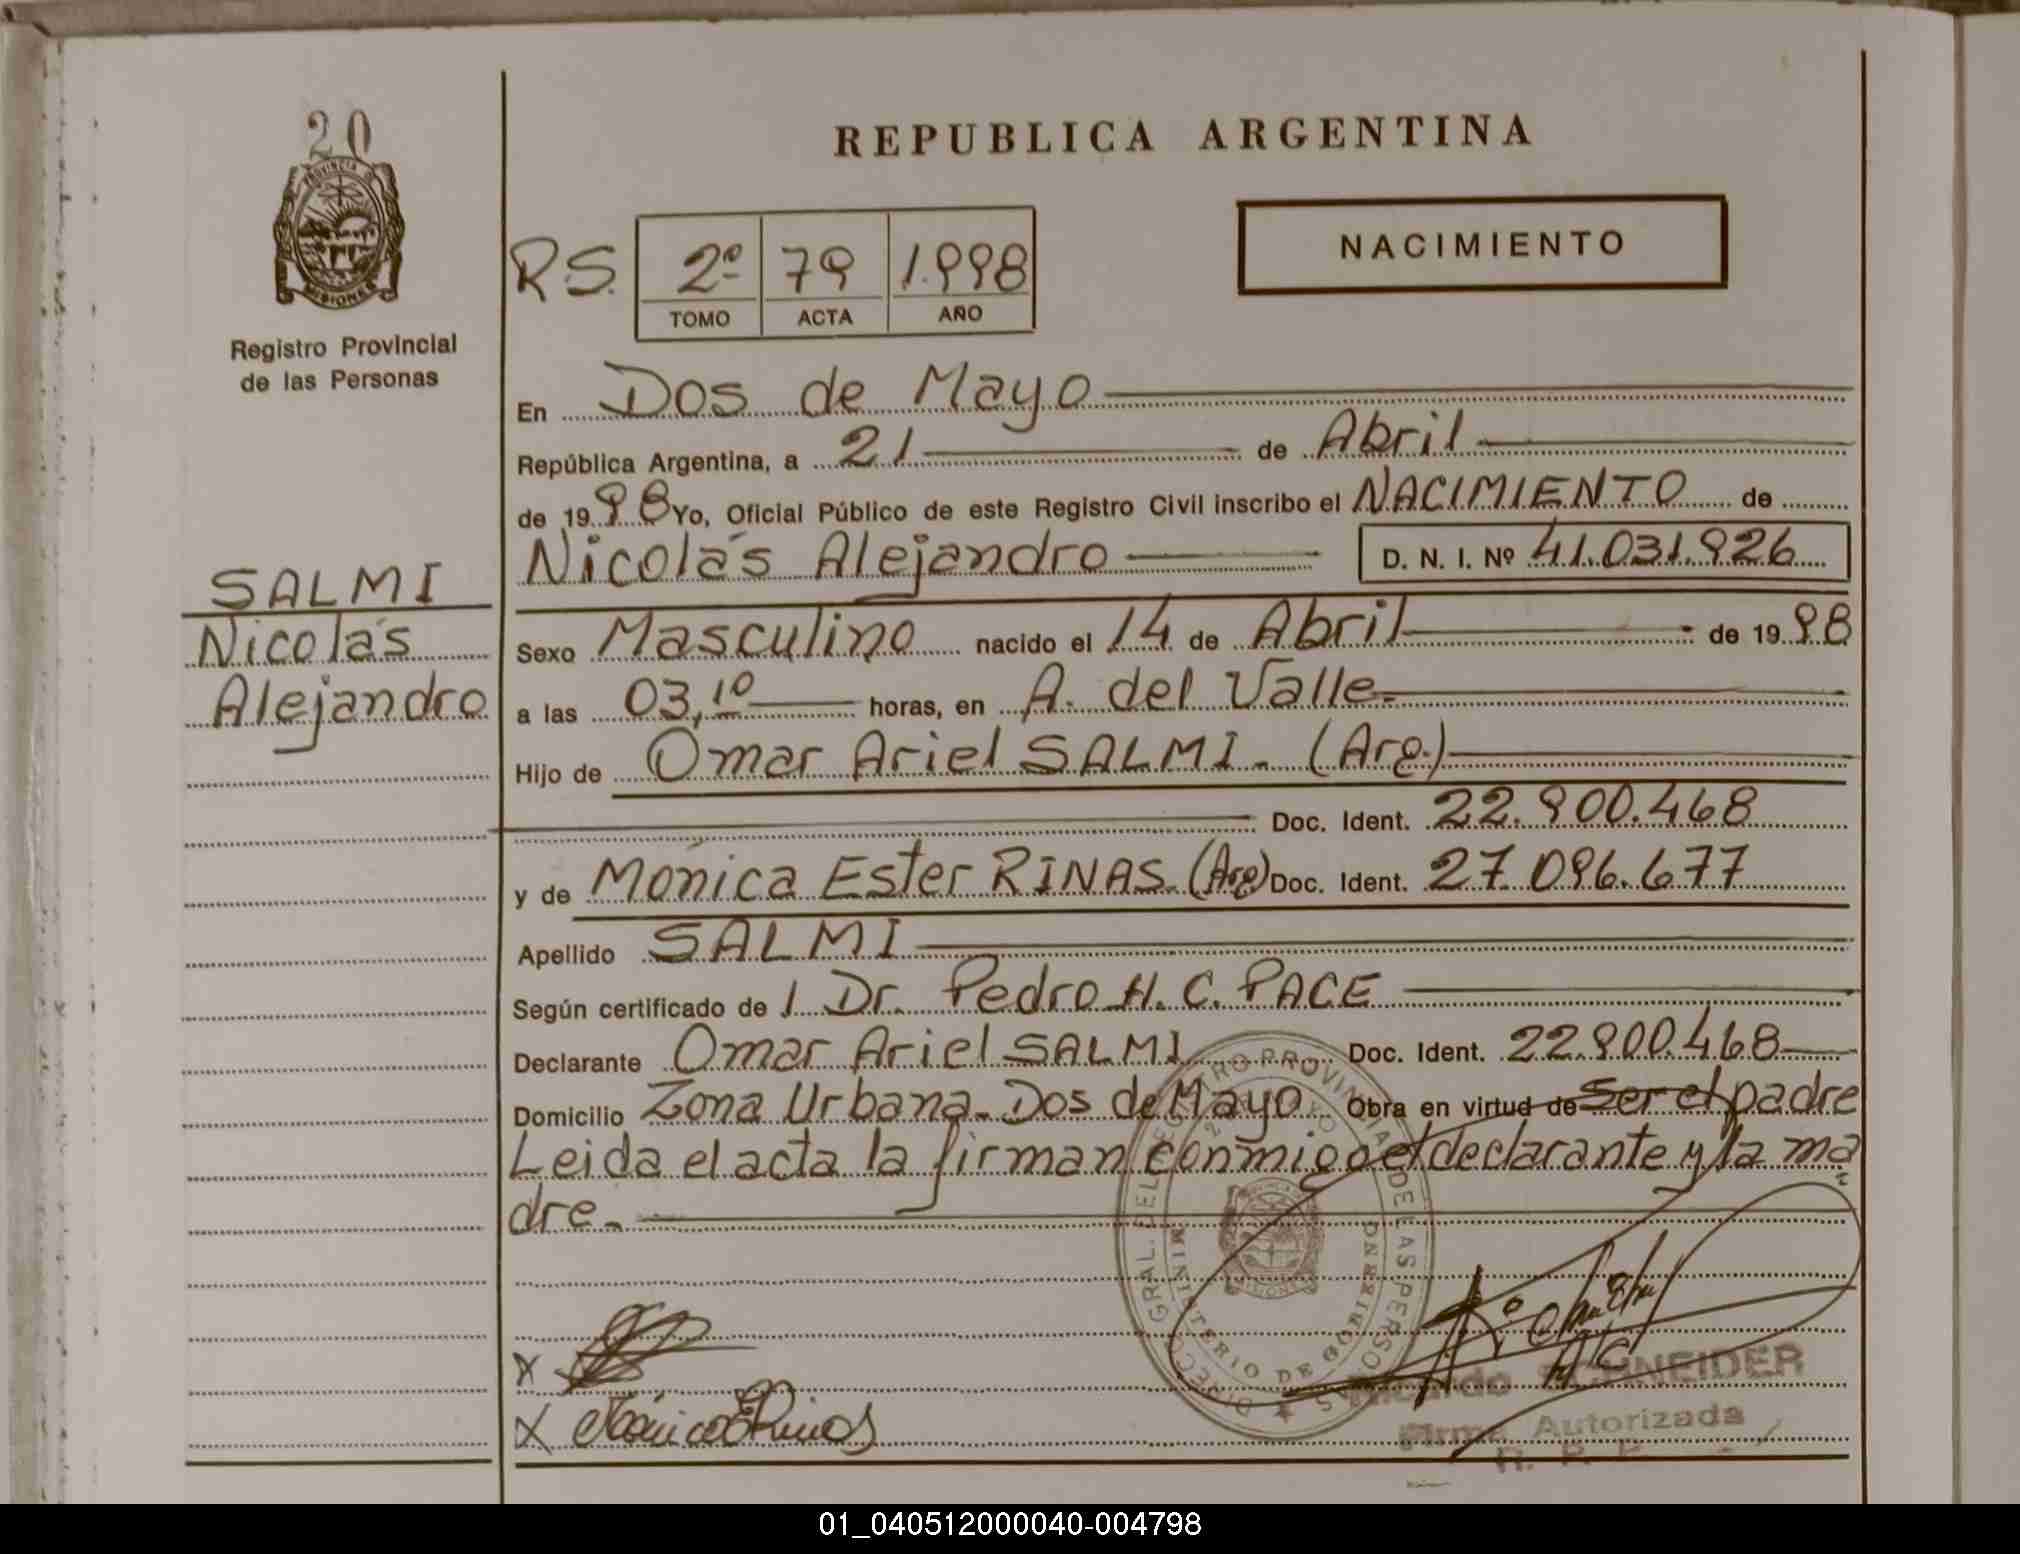 20
PROVINCIA D
MISIONES
Registro Provincial
de las Personas
SALMI
Nicolás
Alejandro
REPUBLICA ARGENTINA
NACIMIENTO
R.S. 2º 79 1.998
TOMO ACTA AÑO
En Dos de Mayo
República Argentina, a 21 de Abril
de 1998 Yo, Oficial Público de este Registro Civil inscribo el NACIMIENTO de
Nicolás Alejandro D. N. I. Nº 41.031.926
Sexo Masculino nacido el 14 de Abril de 1998
a las 03,10 horas, en A. del Valle.
Hijo de Omar Ariel SALMI. (Arg.)
Doc. Ident. 22.900.468
y de Mónica Ester RINAS. (Arg) Doc. Ident. 27.096.677
Apellido SALMI
Según certificado de 1 Dr. Pedro H. C. PACE
Declarante Omar Ariel SALMI Doc. Ident. 22.900.468
Domicilio Zona Urbana. Dos de Mayo Obra en virtud de Ser el padre
Leida el acta la firman conmigo el declarante y la ma
dre.
DIRECC. GRAL. DEL REGISTRO PROVINCIAL DE LAS PERSONAS
MINISTERIO DE GOBIERNO
MISIONES
X
X Mónica E Rinas
Ricardo SCHNEIDER
Firma Autorizada
R. P. P.
01_040512000040-004798